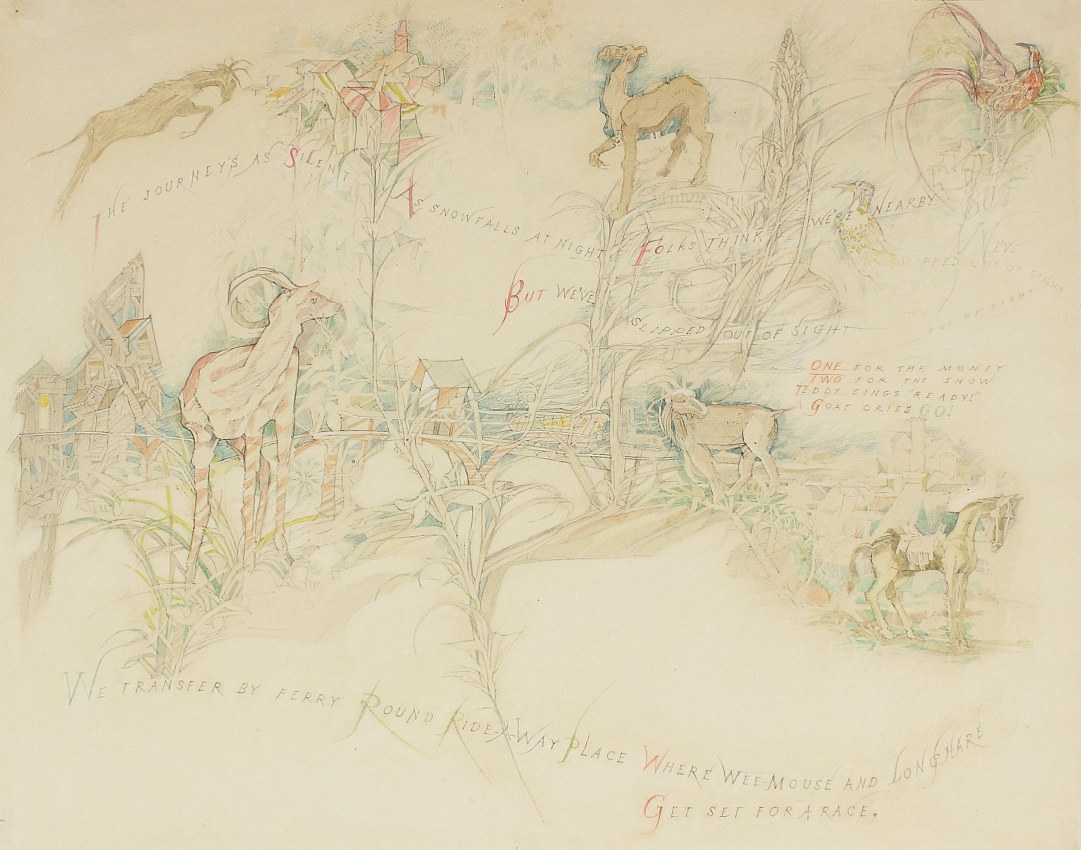 THE JOURNEY'S AS SILENT
AS SNOWFALLS AT NIGHT
FOLKS THINK WE'RE NEARBY
BUT WE'VE
SLIPPED OUT OF SIGHT
BUT
SLIPPED OUT OF SIGHT
OUT OF SIGHT
ONE FOR THE MONEY
TWO FOR THE SNOW
TEDDY SINGS "READY!"
GOAT CRIES GO!
WE TRANSFER BY FERRY ROUND RIDE-A-WAY PLACE WHERE WEE-MOUSE AND LONGSHARE
GET SET FOR A RACE.